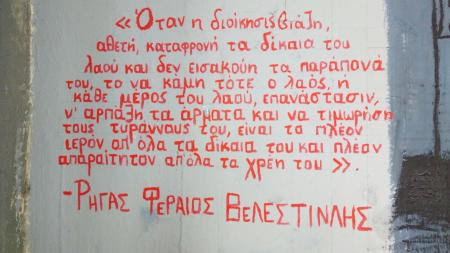 « Όταν η διοίκησις βιάζη,
αθετή, καταφρονή τα δίκαια του
λαού και δεν εισακούη τα παράπονά
του, το να κάμη τότε ο λαός, ή
κάθε μέρος του λαού, επανάστασιν,
ν' αρπάζη τα άρματα και να τιμωρήση
τους τυράννους του, είναι το πλέον
ιερόν απ' όλα τα δίκαιά του και πλέον
απαραίτητον απ' όλα τα χρέη του ».
-ΡΗΓΑΣ ΦΕΡΑΙΟΣ ΒΕΛΕΣΤΙΝΛΗΣ